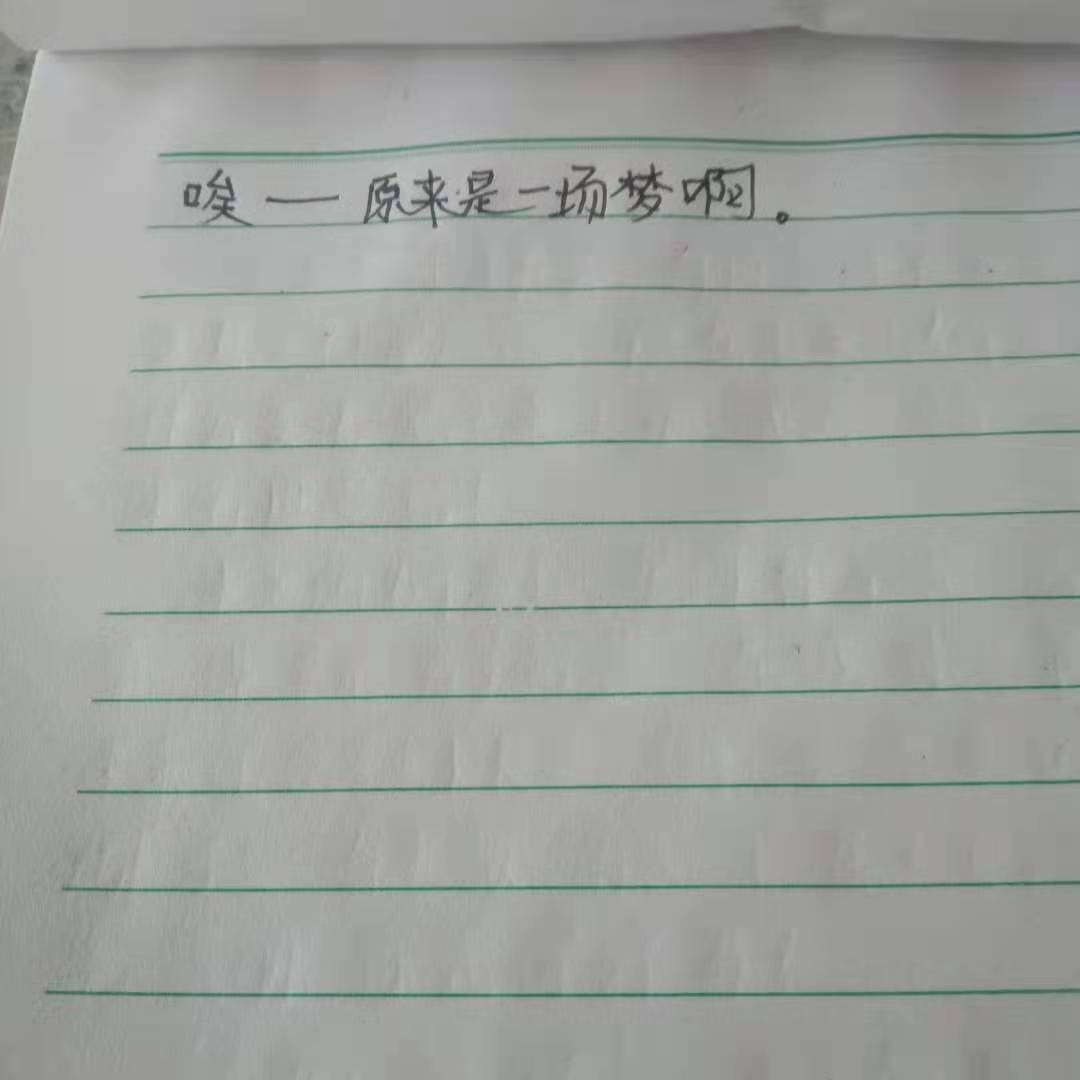 唉——原来是一场梦啊。